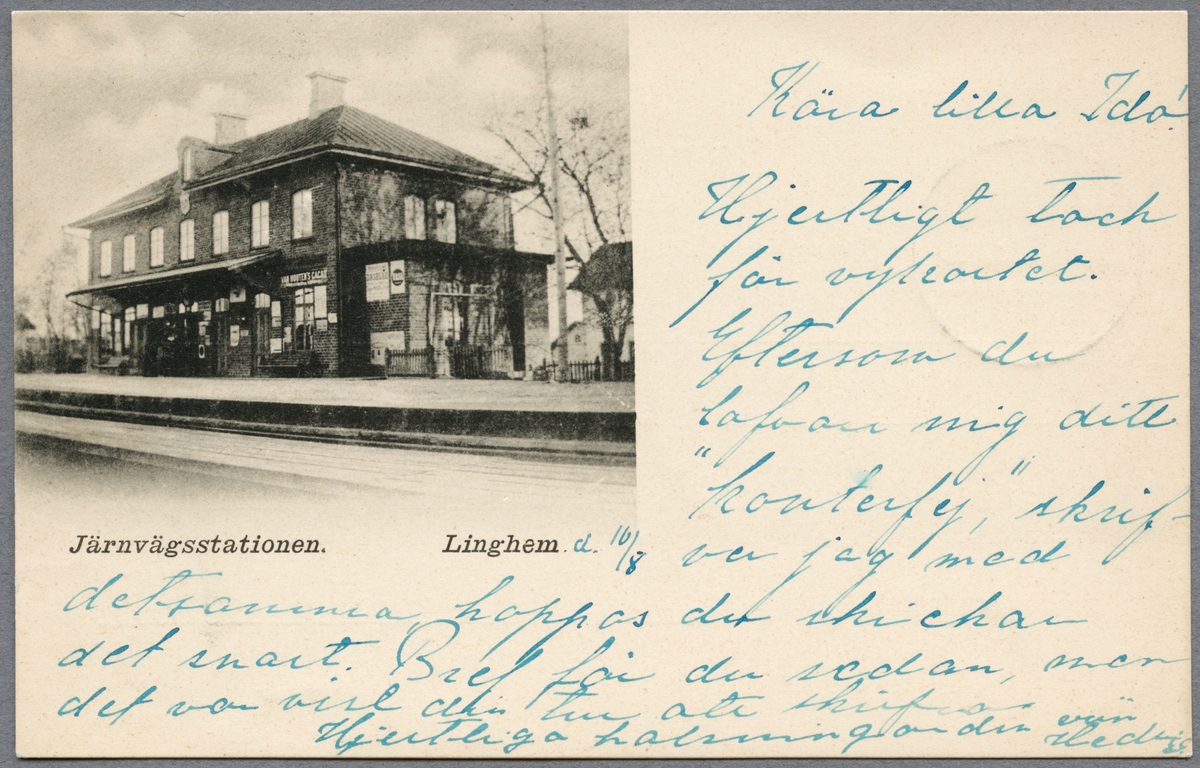 VAN HOUTEN'S CACAO
Kära lilla Ida!
Hjertligt tack
för vykortet.
Eftersom du
lofvar mig ditt
"konterfej", skrif-
ver jag med
Järnvägsstationen.
Linghem d. 16/8
detsamma, hoppas du skickar
det snart. Bref får du sedan, men
det var visst din tur att skrifva
Hjertliga helsningar din vän